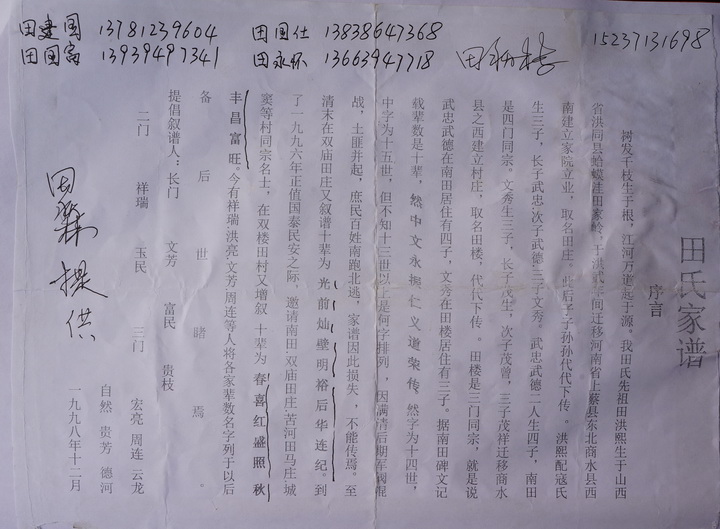 田建国 13781239604
田国富 13939497341
田国仕 13838647368
田永怀 13663947718
15237131698
田氏家谱
序言
树发千枝生于根，江河万道起于源。我田氏先祖田洪熙生于山西
省洪同县蛤蟆洼田家岭，于洪武年间迁移河南省上蔡县东北商水县西
南建立家院立业，取名田庄。此后子子孙孙代代下传。洪熙配寇氏
生三子，长子武忠次子武德三子文秀。武忠武德二人生四子，南田
是四门同宗。文秀生三子，长子茂生，次子茂曾，三子茂祥迁移商水
县之西建立村庄，取名田楼，代代下传。田楼是三门同宗，就是说
武忠武德在南田居住有四子，文秀在田楼居住有三子。据南田碑文记
载辈数是十辈，然中文永振仁义道荣传。然字为十四世，
中字为十五世，但不知十三世以上是何字排列，因满清后期军阀混
战，土匪并起，庶民百姓南跑北逃，家谱因此损失，不能传焉。至
清末在双庙田庄又叙谱十辈为光前灿壁明裕后华连纪。到
了一九九六年正值国泰民安之际，邀请南田双庙田庄苦河田马庄城
窦等村同宗名士，在双楼田村又增叙十辈为春喜红盛照秋
丰昌富旺。今有祥瑞洪亮文芳周连等人将各家辈数名字列于以后
备后世睹焉。
提倡叙谱人：长门 文芳 富民 贵枝
二门 祥瑞 玉民 三门 宏亮 周连 云龙
自然 贵芳 德河
一九九八年十二月
提供